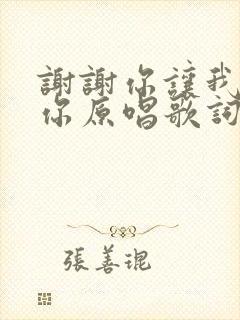 謝謝你讓我
你原唱歌詞
張善琨